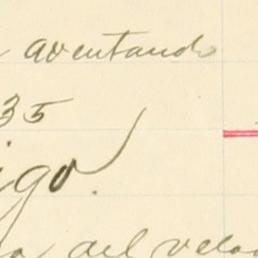 aventando
35
igo.
del velo